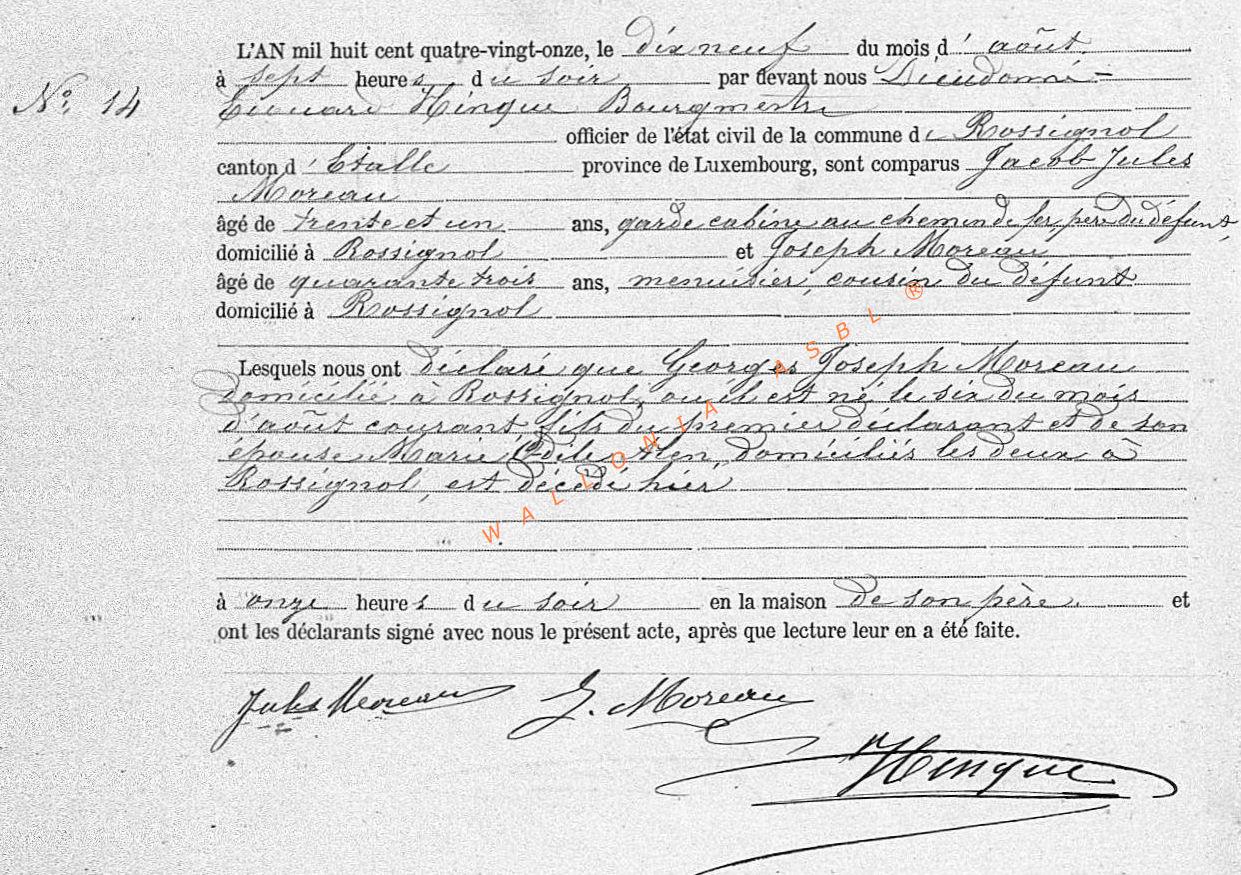 L'AN mil huit cent quatre-vingt-onze, le dix neuf du mois d' août
à sept heures du soir par devant nous Dieudonné-
No. 14
Edouard Hinque Bourgmestre
officier de l'état civil de la commune de Rossignol
canton d' Etalle province de Luxembourg, sont comparus Jacob Jules
Moreau
âgé de trente et un ans, garde cabine au chemin de fer, père du défunt,
domicilié à Rossignol et Joseph Moreau
âgé de quarante trois ans, menuisier, cousin du défunt
domicilié à Rossignol
Lesquels nous ont déclaré que Georges Joseph Moreau
domicilié à Rossignol, où il est né le six du mois
d'août courant, fils du premier déclarant et de son
épouse Marie Odile, domiciliés les deux à
Rossignol, est décédé hier
WALLONIA ASBL ®
à onze heures du soir en la maison de son père. et
ont les déclarants signé avec nous le présent acte, après que lecture leur en a été faite.
Jules Moreau J. Moreau
Hinque